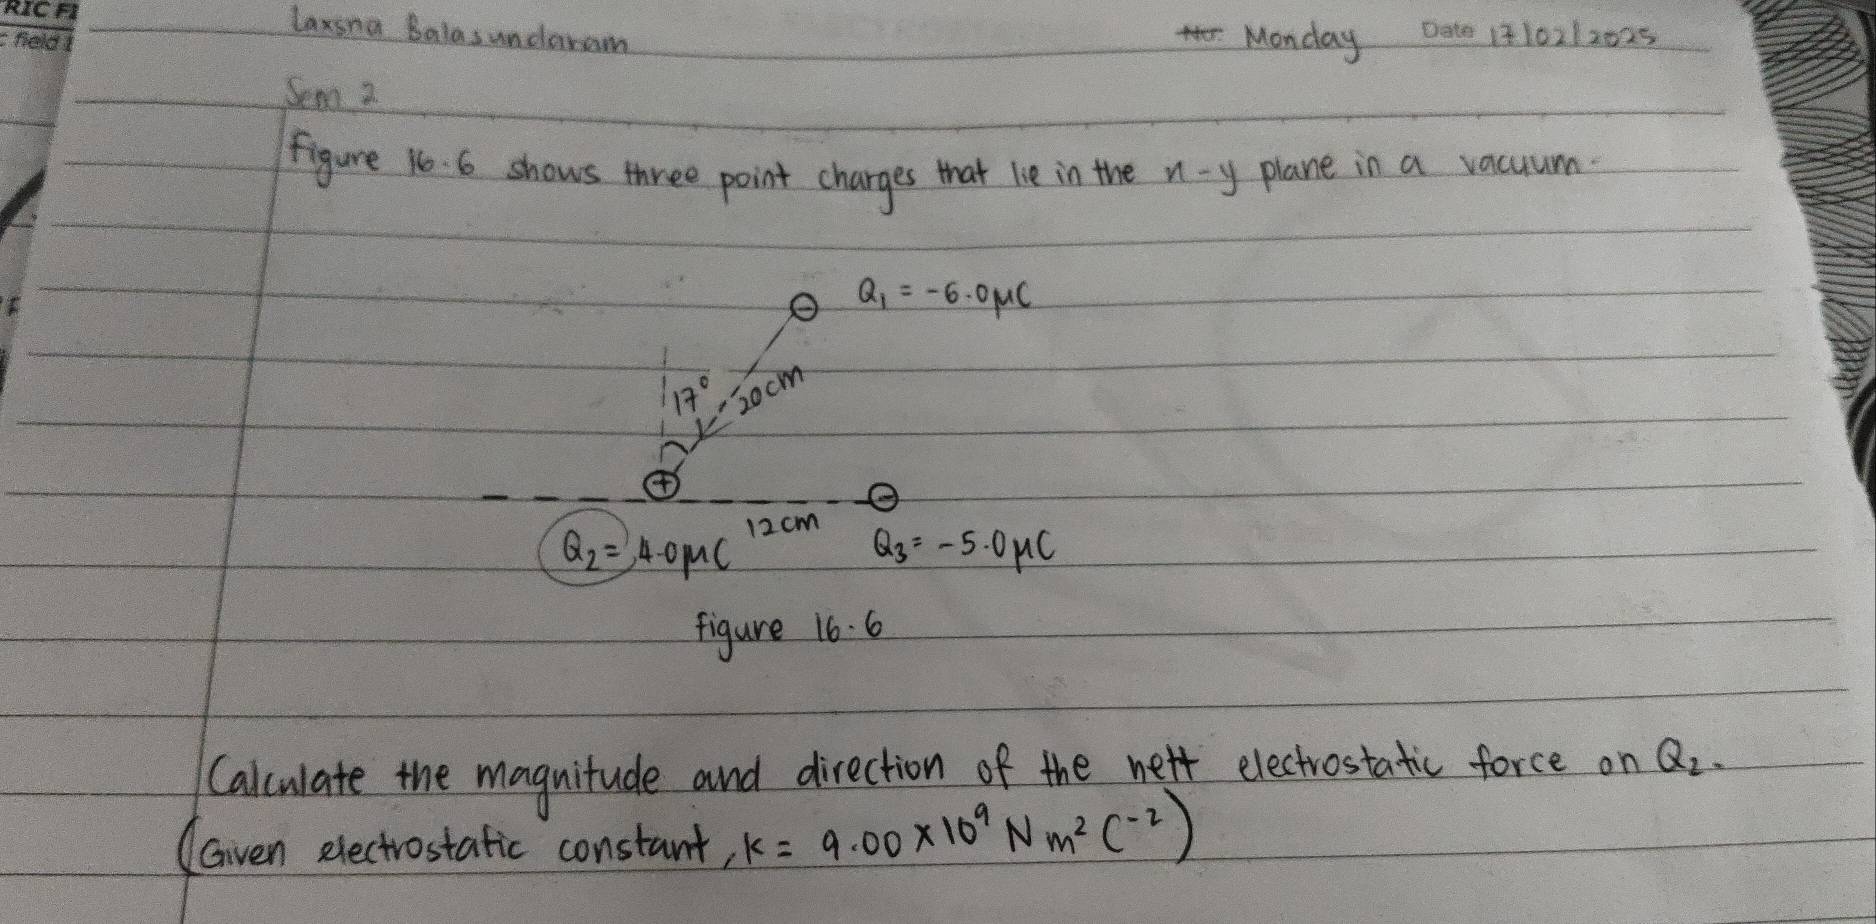 RIC FI
field
Laxsna Balasundaram
Monday Date 17/02/2025
Sem 2
Figure 16.6 shows three point charges that lie in the x-y plane in a vacuum.
Q₁ = -6.0μC
17°
20cm
12cm
Q₂ = 4.0μC
Q₃ = -5.0μC
figure 16.6
Calculate the magnitude and direction of the nett electrostatic force on Q₂.
(Given electrostatic constant, k = 9.00 × 10⁹ N m² C⁻²)